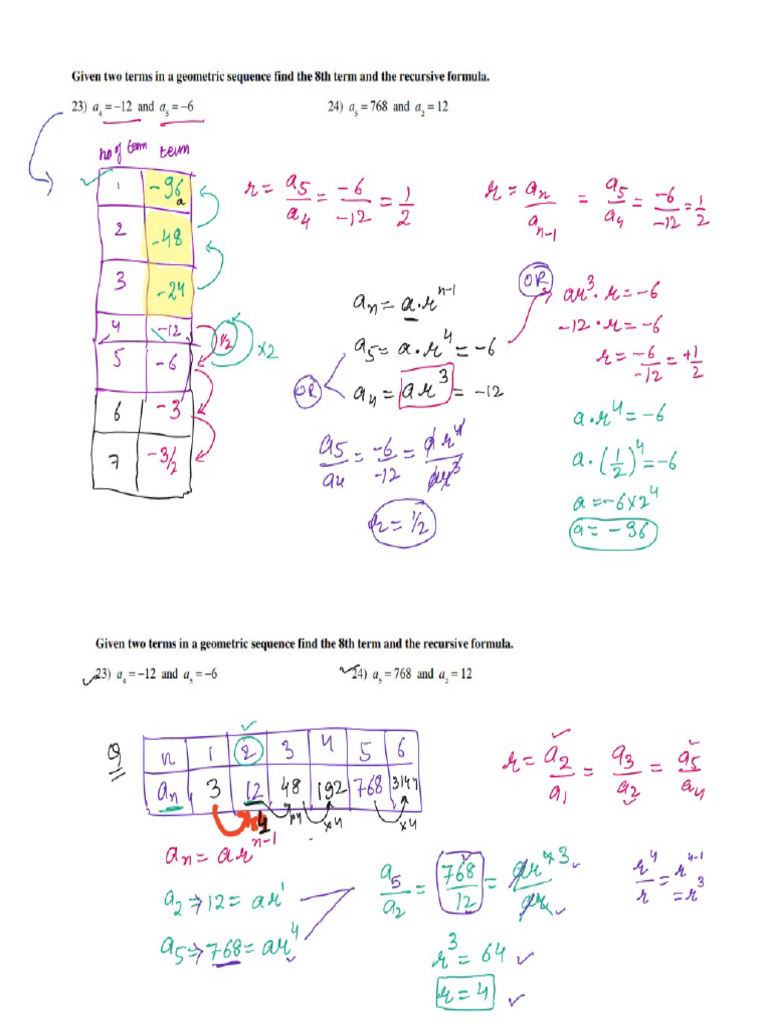 Given two terms in a geometric sequence find the 8th term and the recursive formula.
23) a₄ = −12 and a₅ = −6
24) a₅ = 768 and a₂ = 12
no of term term
1 −96 a
2 −48
3 −24
4 −12
5 −6
6 −3
7 −3/2
1/2
×2
r = a₅/a₄ = −6/−12 = 1/2
r = aₙ/aₙ₋₁ = a₅/a₄ = −6/−12 = 1/2
aₙ = a·rⁿ⁻¹
a₅ = a·r⁴ = −6
OR
a₄ = ar³ = −12
a₅/a₄ = −6/−12 = ar⁴/ar³
r = 1/2
OR
ar³·r = −6
−12·r = −6
r = −6/−12 = +1/2
a·r⁴ = −6
a·(1/2)⁴ = −6
a = −6×2⁴
a = −96
Given two terms in a geometric sequence find the 8th term and the recursive formula.
23) a₄ = −12 and a₅ = −6
24) a₅ = 768 and a₂ = 12
Q
n 1 2 3 4 5 6
aₙ 3 12 48 192 768 3147
×4 ×4 ×4
r = a₂/a₁ = a₃/a₂ = a₅/a₄
aₙ = arⁿ⁻¹
a₂ → 12 = ar¹
a₅ → 768 = ar⁴
a₅/a₂ = 768/12 = ar⁴ ³/ar
r³ = 64
r = 4
r⁴/r = r⁴⁻¹
= r³